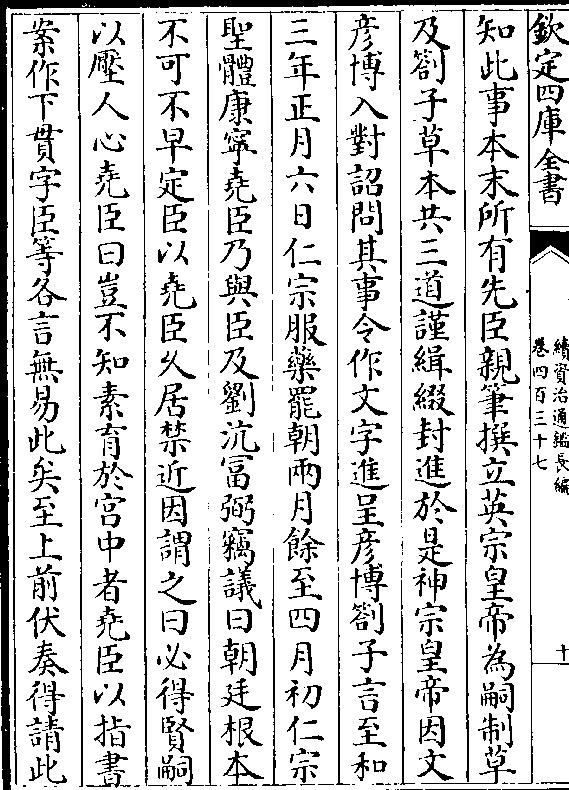 欽定四庫全書
續資治通鑑長編
卷四百三十七
十
知此事本末所有先臣親筆撰立英宗皇帝為嗣制草
及劄子草本共三道謹緝綴封進於是神宗皇帝因文
彦博入對詔問其事令作文字進呈彦博劄子言至和
三年正月六日仁宗服藥罷朝兩月餘至四月初仁宗
聖體康寧堯臣乃與臣及劉沆冨弼竊議曰朝廷根本
不可不早定臣以堯臣久居禁近因謂之曰必得賢嗣
以壓人心堯臣曰豈不知素育於宫中者堯臣以指書
案作下貫字臣等各言無易此矣至上前伏奏得請此